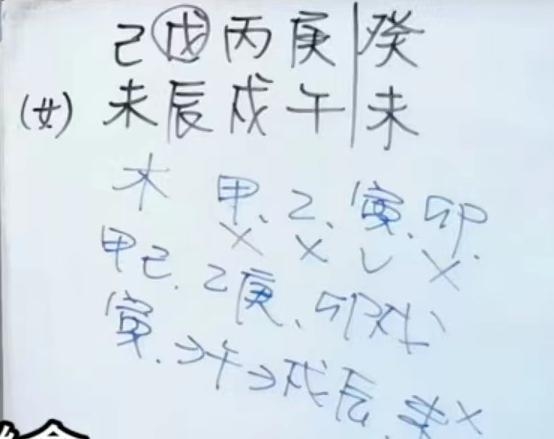 己戊丙庚|癸
(女) 未辰戌午|未
木 甲、乙、寅、卯.
× × ✓ ×
甲己、乙庚、卯戌
寅、→午→戌辰、未×